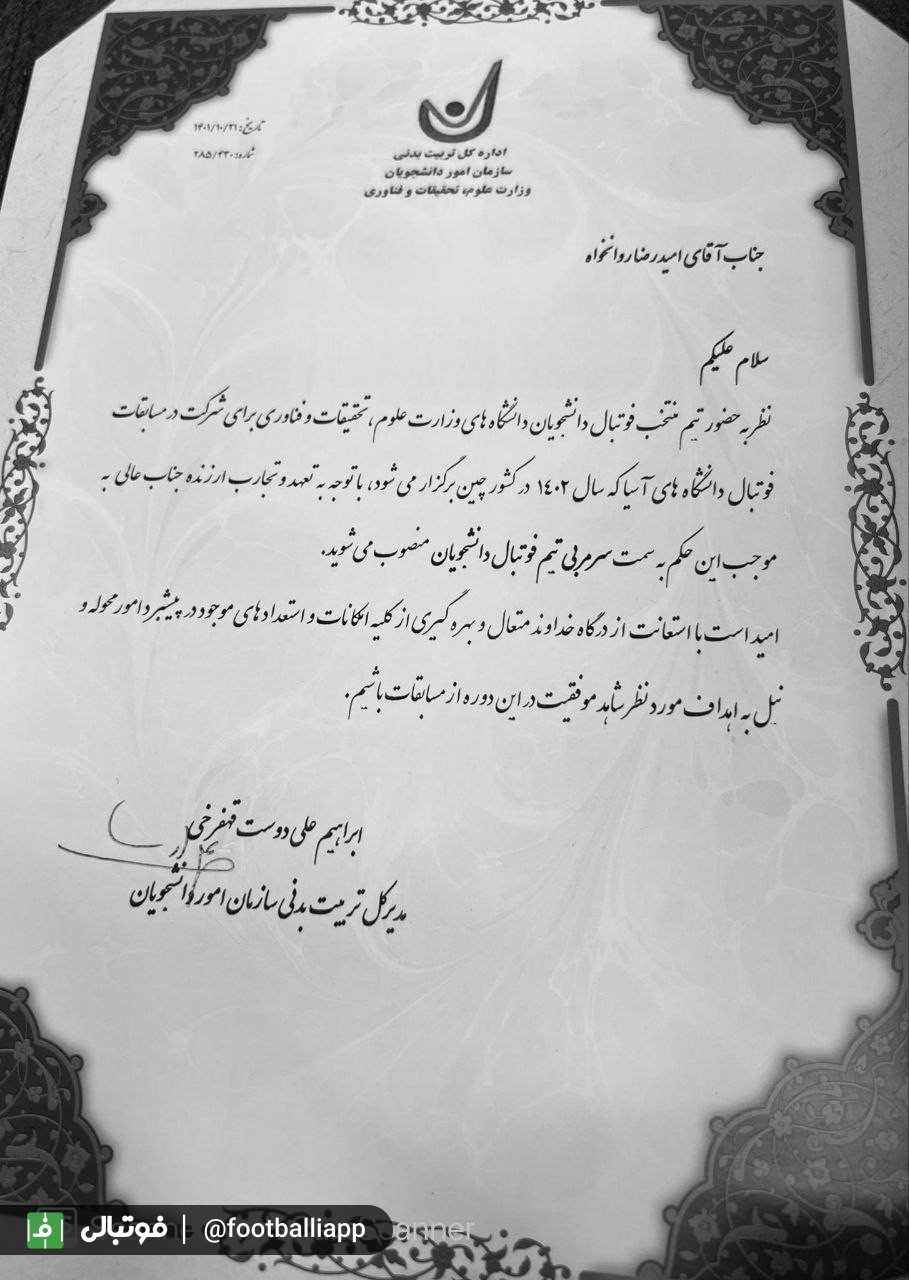 تاریخ: ۱۴۰۱/۱۰/۲۱
شماره: ۲۸۵/۴۳۰
اداره کل تربیت بدنی
سازمان امور دانشجویان
وزارت علوم، تحقیقات و فناوری
جناب آقای امیدرضا روانخواه
سلام علیکم
نظر به حضور تیم منتخب فوتبال دانشجویان دانشگاه های وزارت علوم، تحقیقات و فناوری برای شرکت در مسابقات
فوتبال دانشگاه های آسیا که سال ۱۴۰۲ در کشور چین برگزار می شود، با توجه به تعهد و تجارب ارزنده جناب عالی به
موجب این حکم به سمت سرمربی تیم فوتبال دانشجویان منصوب می شوید.
امید است با استعانت از درگاه خداوند متعال و بهره گیری از کلیه امکانات و استعدادهای موجود در پیشبرد امور محوله و
نیل به اهداف مورد نظر شاهد موفقیت در این دوره از مسابقات باشیم.
ابراهیم علی دوست قهفرخی
مدیرکل تربیت بدنی سازمان امور دانشجویان
فوتبالی | @footballiapp